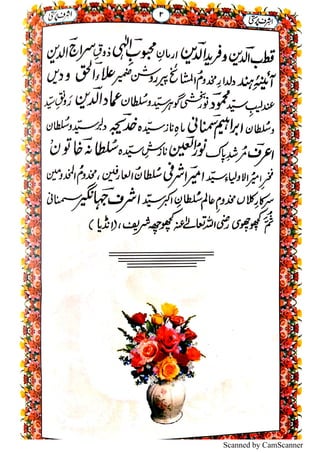 ۲
قطب الدین و فرید الدین ارمانِ محبوبِ الٰہی ذوقِ سراج الدین
آئینۂ ہند دلدارِ مخدوم المشائخ پیر روشن ضمیر علاؤ الحق و دیں
عندلیب سید محمود نور بخشی گوہرِ سید و سلطان عماد الدین رونقِ سید
و سلطان ابراہیم سمنانی ماہِ ناز سیدہ خدیجہ دلبرِ سید و سلطان
اعرف مرشدِ پاک نور العین نازشِ سیدہ سلطانہ خاتون
فخرِ امیر الاولیاء سید امیر اشرفی سلطان العارفین، مخدوم المخدومین
سرکارِ کلاں مخدومِ عالم سلطانِ اکبر سید اشرف جہانگیر سمنانی
ثم کچھوچھوی رضی اللہ تعالیٰ عنہ کچھوچھہ شریف، (انڈیا)
Scanned by CamScanner